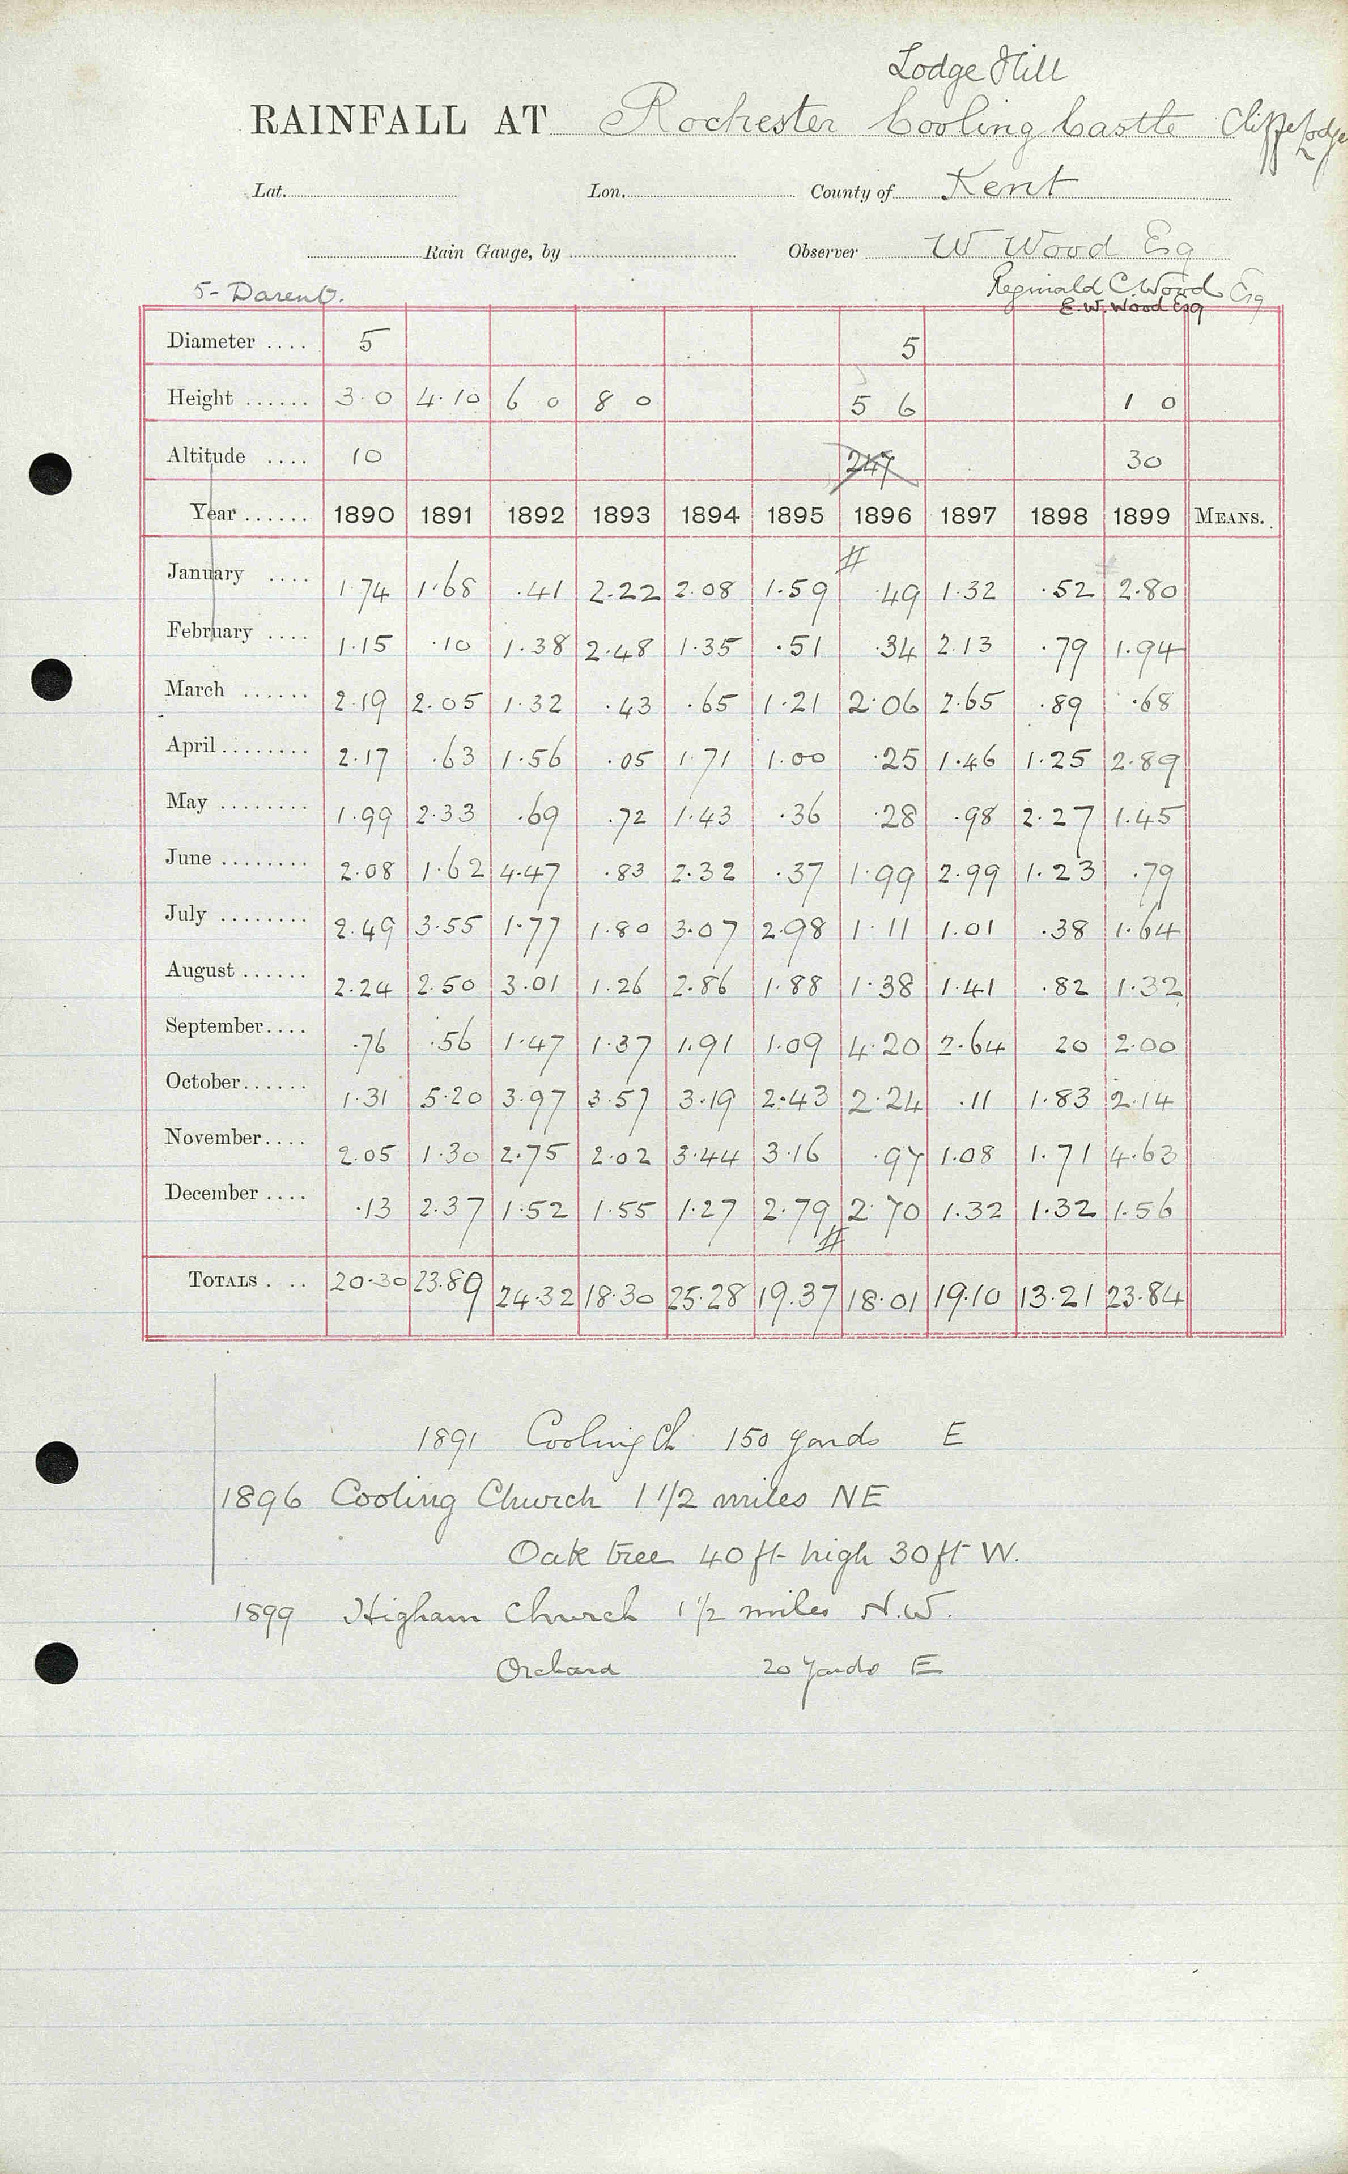 Lodge Hill
RAINFALL AT Rochester Cooling Castle Cliffe Lodge
Lat. Lon. County of Kent
Rain Gauge, by Observer W Wood Esq
5- Darent. Reginald C. Wood Esq
E. W. Wood Esq
Diameter .... 5 5
Height ...... 3·0 4·10 6 0 8 0 5 6 1 0
Altitude .... 10 247 30
Year ...... 1890 1891 1892 1893 1894 1895 1896 1897 1898 1899 MEANS.
January .... 1·74 1·68 ·41 2·22 2·08 1·59 # ·49 1·32 ·52 # 2·80
February .... 1·15 ·10 1·38 2·48 1·35 ·51 ·34 2·13 ·79 1·94
March ...... 2·19 2·05 1·32 ·43 ·65 1·21 2·06 2·65 ·89 ·68
April ........ 2·17 ·63 1·56 ·05 1·71 1·00 ·25 1·46 1·25 2·89
May ........ 1·99 2·33 ·69 ·72 1·43 ·36 ·28 ·98 2·27 1·45
June ........ 2·08 1·62 4·47 ·83 2·32 ·37 1·99 2·99 1·23 ·79
July ........ 2·49 3·55 1·77 1·80 3·07 2·98 1·11 1·01 ·38 1·64
August ...... 2·24 2·50 3·01 1·26 2·86 1·88 1·38 1·41 ·82 1·32
September .... ·76 ·56 1·47 1·37 1·91 1·09 4·20 2·64 20 2·00
October ...... 1·31 5·20 3·97 3·57 3·19 2·43 2·24 ·11 1·83 2·14
November .... 2·05 1·30 2·75 2·02 3·44 3·16 ·97 1·08 1·71 4·63
December .... ·13 2·37 1·52 1·55 1·27 2·79 # 2·70 1·32 1·32 1·56
TOTALS . .. 20·30 23·89 24·32 18·30 25·28 19·37 18·01 19·10 13·21 23·84
1891 Cooling Ch 150 yards E
1896 Cooling Church 1 1/2 miles NE
Oak tree 40 ft high 30 ft W.
1899 Higham Church 1 1/2 miles N.W.
Orchard 20 yards E